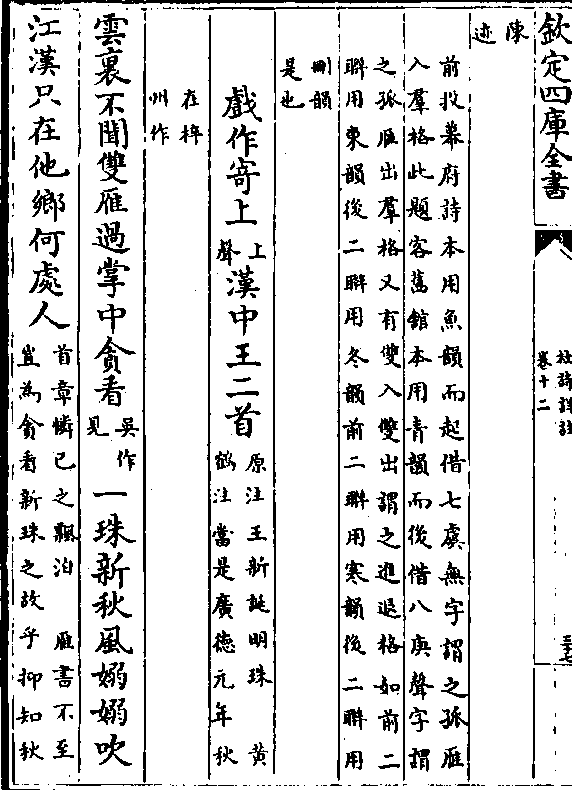 欽定四庫全書
杜詩詳註
卷十二
三十七
陳
迹
前投幕府詩本用魚韻而起借七虞無字謂之孤雁
入羣格此題客舊館本用青韻而後借八庚聲字謂
之孤雁出羣格又有雙入雙出謂之進退格如前二
聯用東韻後二聯用冬韻前二聯用寒韻後二聯用
刪韻
是也
戲作寄上上聲漢中王二首原注王新誕明珠 黃鶴注當是廣德元年秋
在梓
州作
雲裏不聞雙雁過掌中貪看吳作見一珠新秋風嫋嫋吹
江漢只在他鄉何處人首章憐己之飄泊 雁書不至豈為貪看新珠之故乎抑知秋